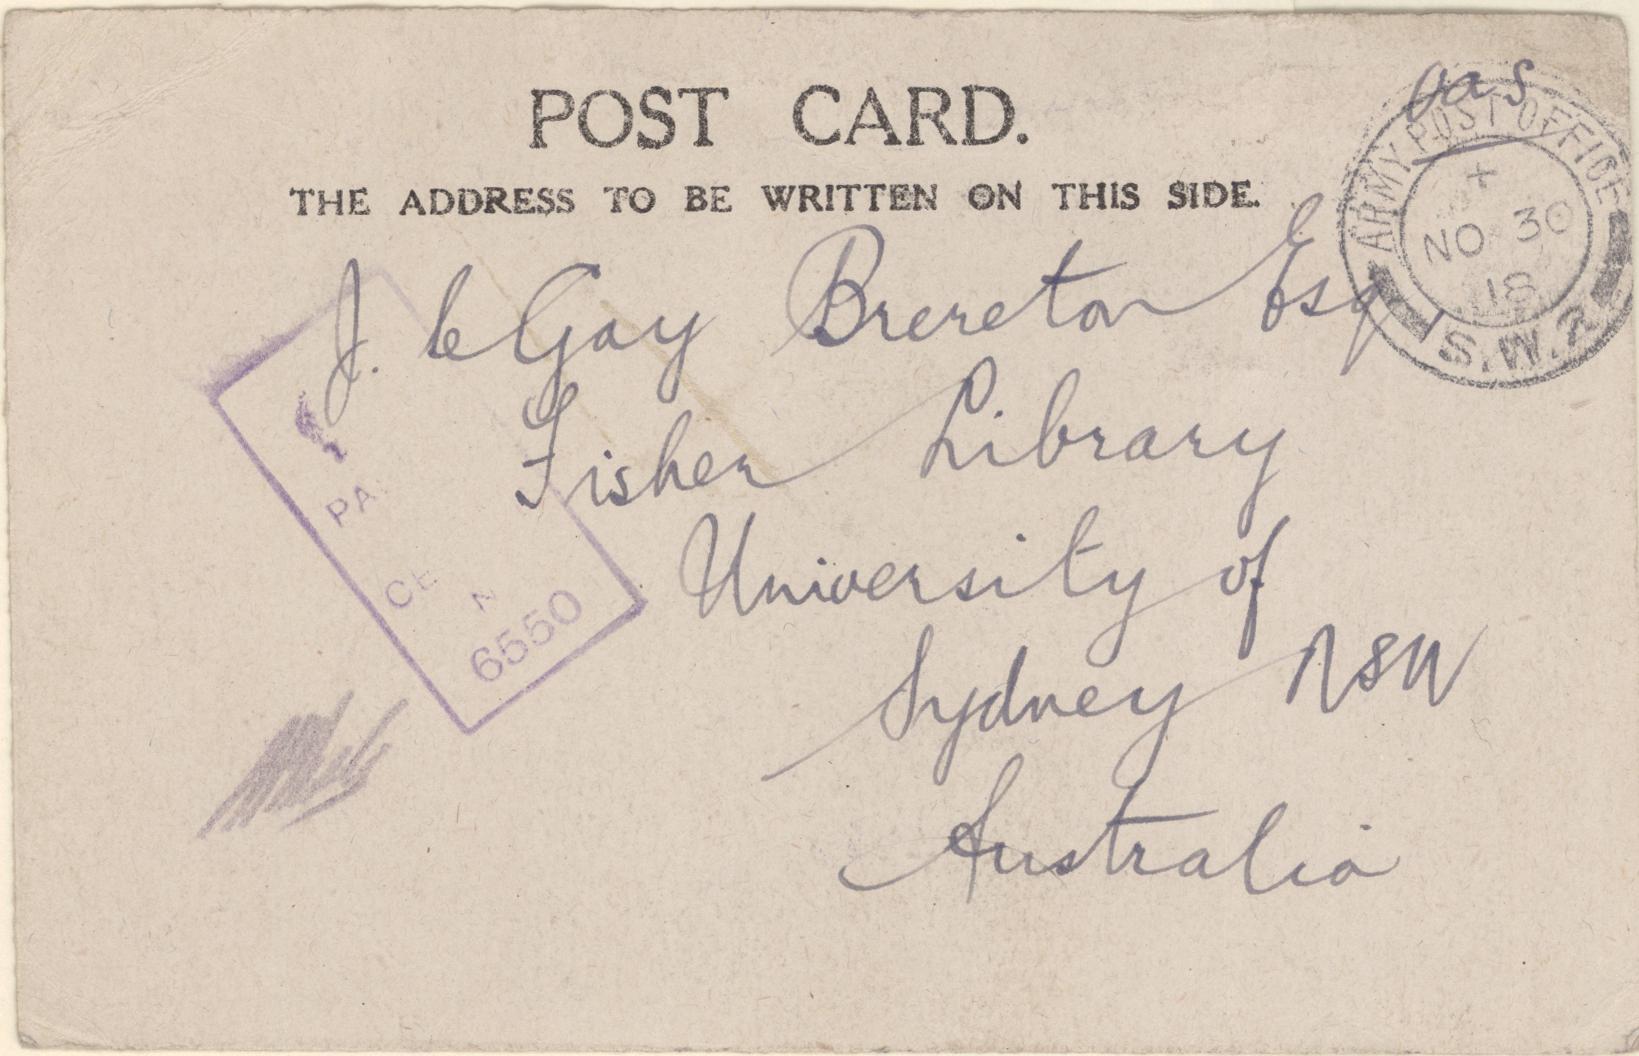 POST CARD.
THE ADDRESS TO BE WRITTEN ON THIS SIDE.
oas
ARMY POST OFFICE
+
NO 30
18
S.W.
J. le Gay Brereton Esq
Fisher Library
University of
Sydney NSW
Australia
PA
CE
N
6550